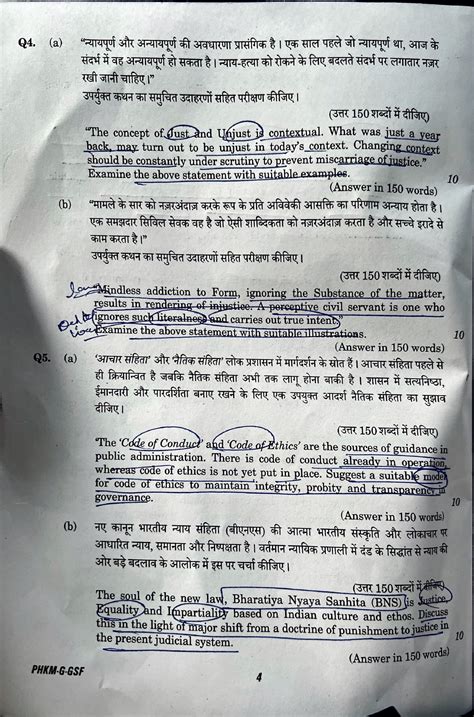 Q4. (a) "न्यायपूर्ण और अन्यायपूर्ण की अवधारणा प्रासंगिक है। एक साल पहले जो न्यायपूर्ण था, आज के
संदर्भ में वह अन्यायपूर्ण हो सकता है। न्याय-हत्या को रोकने के लिए बदलते संदर्भ पर लगातार नज़र
रखी जानी चाहिए।"
उपर्युक्त कथन का समुचित उदाहरणों सहित परीक्षण कीजिए।
(उत्तर 150 शब्दों में दीजिए)
"The concept of Just and Unjust is contextual. What was just a year
back, may turn out to be unjust in today's context. Changing context
should be constantly under scrutiny to prevent miscarriage of justice."
Examine the above statement with suitable examples. 10
(Answer in 150 words)
(b) "मामले के सार को नज़रअंदाज़ करके रूप के प्रति अविवेकी आसक्ति का परिणाम अन्याय होता है।
एक समझदार सिविल सेवक वह है जो ऐसी शाब्दिकता को नज़रअंदाज़ करता है और सच्चे इरादे से
काम करता है।"
उपर्युक्त कथन का समुचित उदाहरणों सहित परीक्षण कीजिए।
(उत्तर 150 शब्दों में दीजिए)
"Mindless addiction to Form, ignoring the Substance of the matter,
results in rendering of injustice. A perceptive civil servant is one who
ignores such literalness and carries out true intent."
Examine the above statement with suitable illustrations. 10
(Answer in 150 words)
Q5. (a) 'आचार संहिता' और 'नैतिक संहिता' लोक प्रशासन में मार्गदर्शन के स्रोत हैं। आचार संहिता पहले से
ही क्रियान्वित है जबकि नैतिक संहिता अभी तक लागू होना बाकी है। शासन में सत्यनिष्ठा,
ईमानदारी और पारदर्शिता बनाए रखने के लिए एक उपयुक्त आदर्श नैतिक संहिता का सुझाव
दीजिए।
(उत्तर 150 शब्दों में दीजिए)
'The 'Code of Conduct' and 'Code of Ethics' are the sources of guidance in
public administration. There is code of conduct already in operation,
whereas code of ethics is not yet put in place. Suggest a suitable model
for code of ethics to maintain integrity, probity and transparency in
governance. 10
(Answer in 150 words)
(b) नए कानून भारतीय न्याय संहिता (बीएनएस) की आत्मा भारतीय संस्कृति और लोकाचार पर
आधारित न्याय, समानता और निष्पक्षता है। वर्तमान न्यायिक प्रणाली में दंड के सिद्धांत से न्याय की
ओर बड़े बदलाव के आलोक में इस पर चर्चा कीजिए।
(उत्तर 150 शब्दों में दीजिए)
The soul of the new law, Bharatiya Nyaya Sanhita (BNS) is Justice,
Equality and Impartiality based on Indian culture and ethos. Discuss
this in the light of major shift from a doctrine of punishment to justice in
the present judicial system. 10
(Answer in 150 words)
PHKM-G-GSF 4